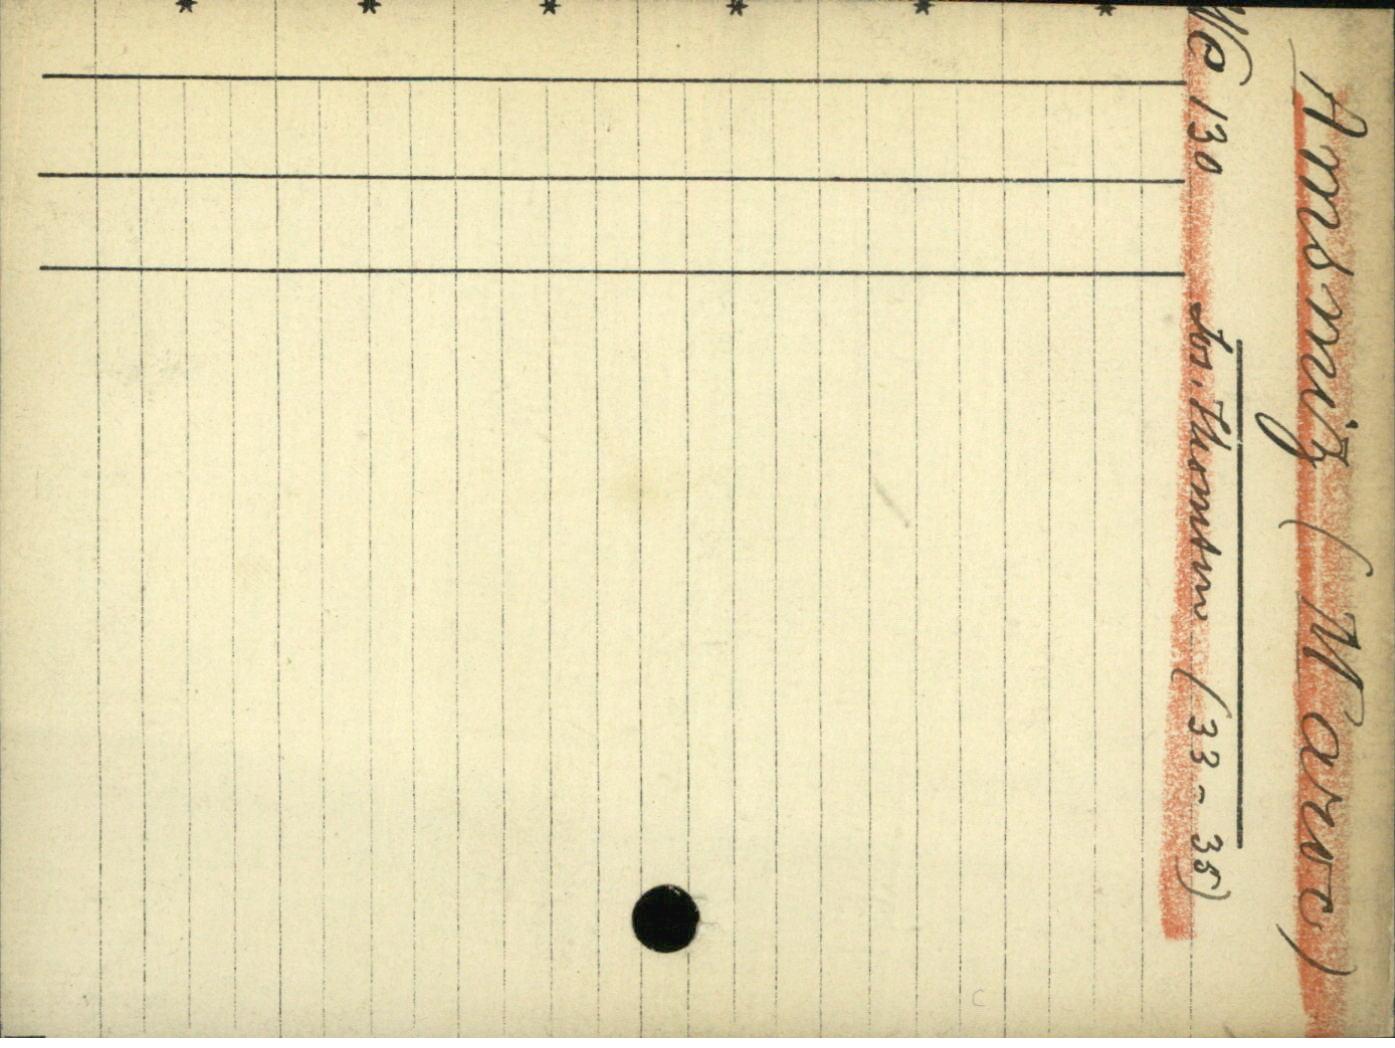 Amsmiz (Maroc)
We 130 Jos. Thomson (33 - 35)